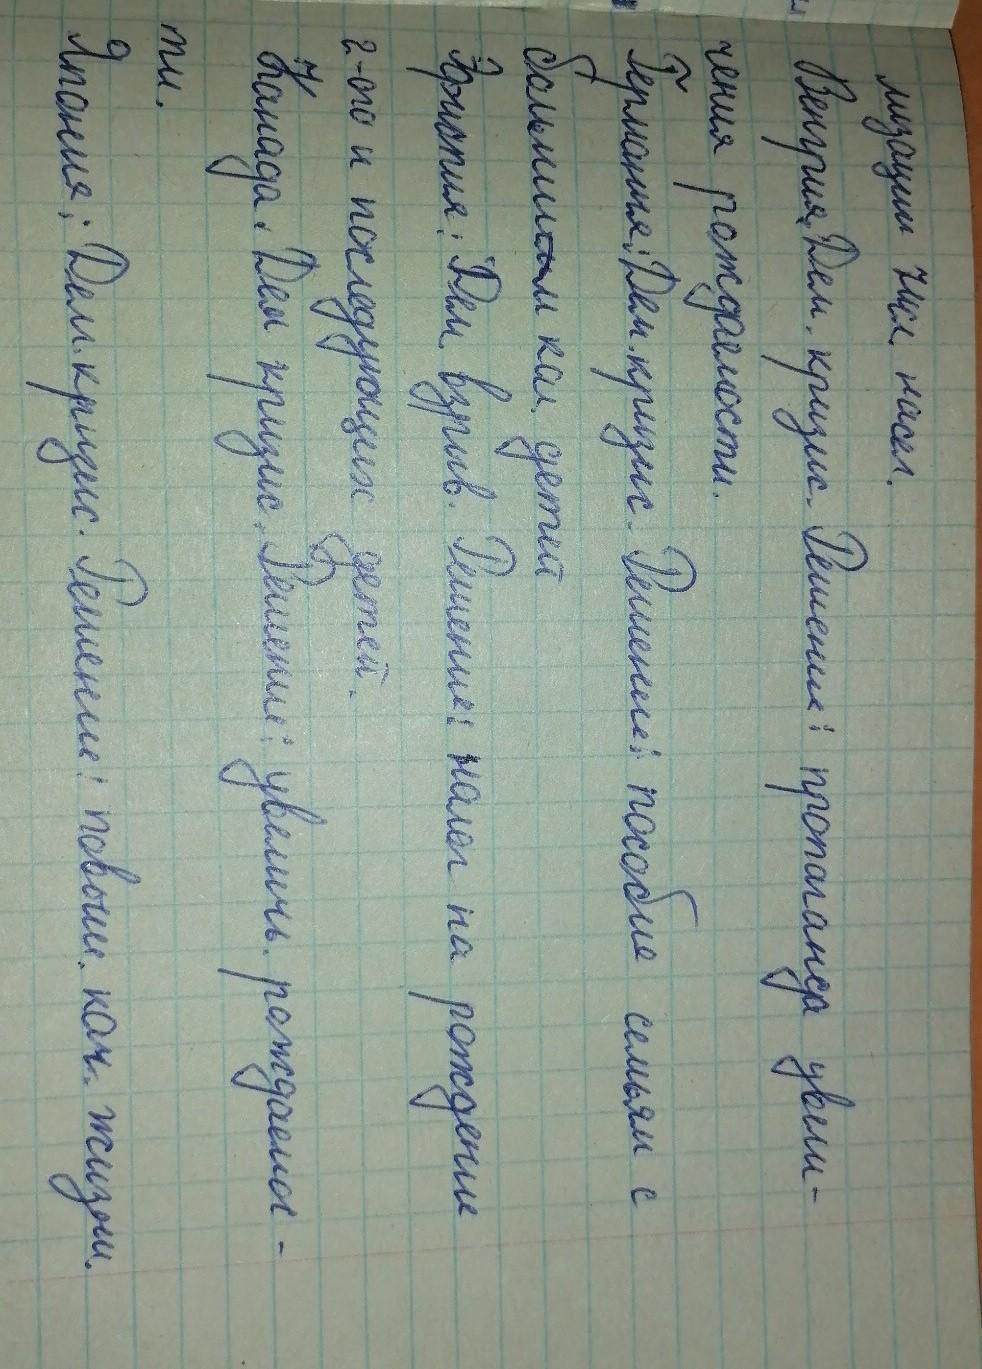 лизации числ. насел.
Венгрия: Дем. кризис. Решение: пропаганда увели-
чения рождаемости.
Германия: Дем. кризис. Решение: пособие семьям с
большим кол. детей
Эфиопия: Дем. взрыв. Решение: налог на рождение
2-ого и последующих детей.
Канада: Дем кризис. Решение: увелич. рождаемос-
ти.
Япония: Дем. кризис. Решение: повыш. кач. жизни.